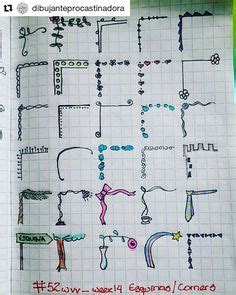 Repost @ dibujanteprocastinadora
ESQUINA
#52wvv_week19 Esquinas/Corners